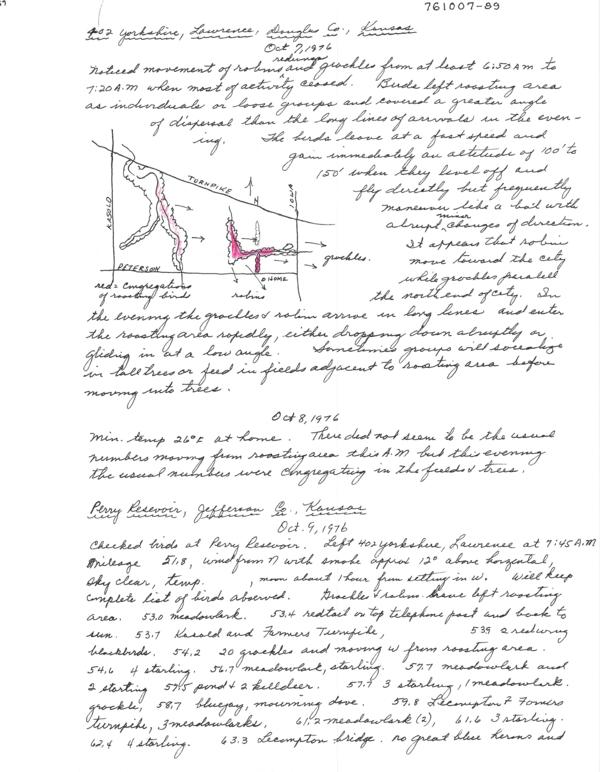 761007-89
402 Yorkshire, Lawrence, Douglas Co., Kansas
Oct 7, 1976
redwings
Noticed movement of robins and grackles from at least 6:50 AM to
7:20 A.M when most of activity ceased. Birds left roosting area
as individuals or loose groups and covered a greater angle
of dispersal than the long lines of arrivals in the even-
ing. The birds leave at a fast speed and
gain immediately an altitude of 100' to
150' when they level off and
fly directly but frequently
maneuver like a bat with
minor
abrupt changes of direction.
It appears that robins
move toward the city
while grackles parallel
the north end of city. In
TURNPIKE
N
KASOLD
IOWA
grackles.
PETERSON
HOME
red = congregations
of roosting birds
robins
the evening the grackles & robins arrive in long lines and enter
the roosting area rapidly, either dropping down abruptly or
gliding in at a low angle. Sometimes groups will socialize
in tall trees or feed in fields adjacent to roosting area before
moving into trees.
Oct 8, 1976
Min. temp 26°F at home. There did not seem to be the usual
numbers moving from roosting area this A.M but this evening
the usual numbers were congregating in the fields & trees.
Perry Resevoir, Jefferson Co., Kansas
Oct. 9, 1976
Checked birds at Perry Resevoir. Left 402 Yorkshire, Lawrence at 7:45 A.M
Mileage 51.8, wind from N with smoke approx 12° above horizontal,
sky clear, temp. , moon about 1 hour from setting in W. Will keep
complete list of birds observed. Grackles & robins have left roosting
area. 53.0 meadowlark. 53.4 redtail on top telephone post and back to
sun. 53.7 Kasold and Farmers Turnpike, 53.9 2 redwing
blackbirds. 54.2 20 grackles and moving W from roosting area.
54.6 4 starling. 56.7 meadowlark, starling. 57.7 meadowlark and
2 starling 57.5 pond & 2 killdeer. 3 starling, 1 meadowlark.
grackle, 58.7 bluejay, mourning dove. 59.8 Lecompton & Farmers
turnpike, 3 meadowlarks. 61.2 meadowlark (2), 61.6 3 starling.
62.4 4 starling. 63.3 Lecompton bridge. no great blue herons and